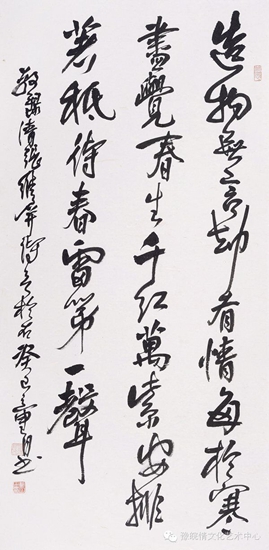 造物無言却有情每於寒
盡覺春生千紅萬紫安排
著秪待春雷第一聲
敬錄清張維屏詩於癸巳月書
情文化艺术中心